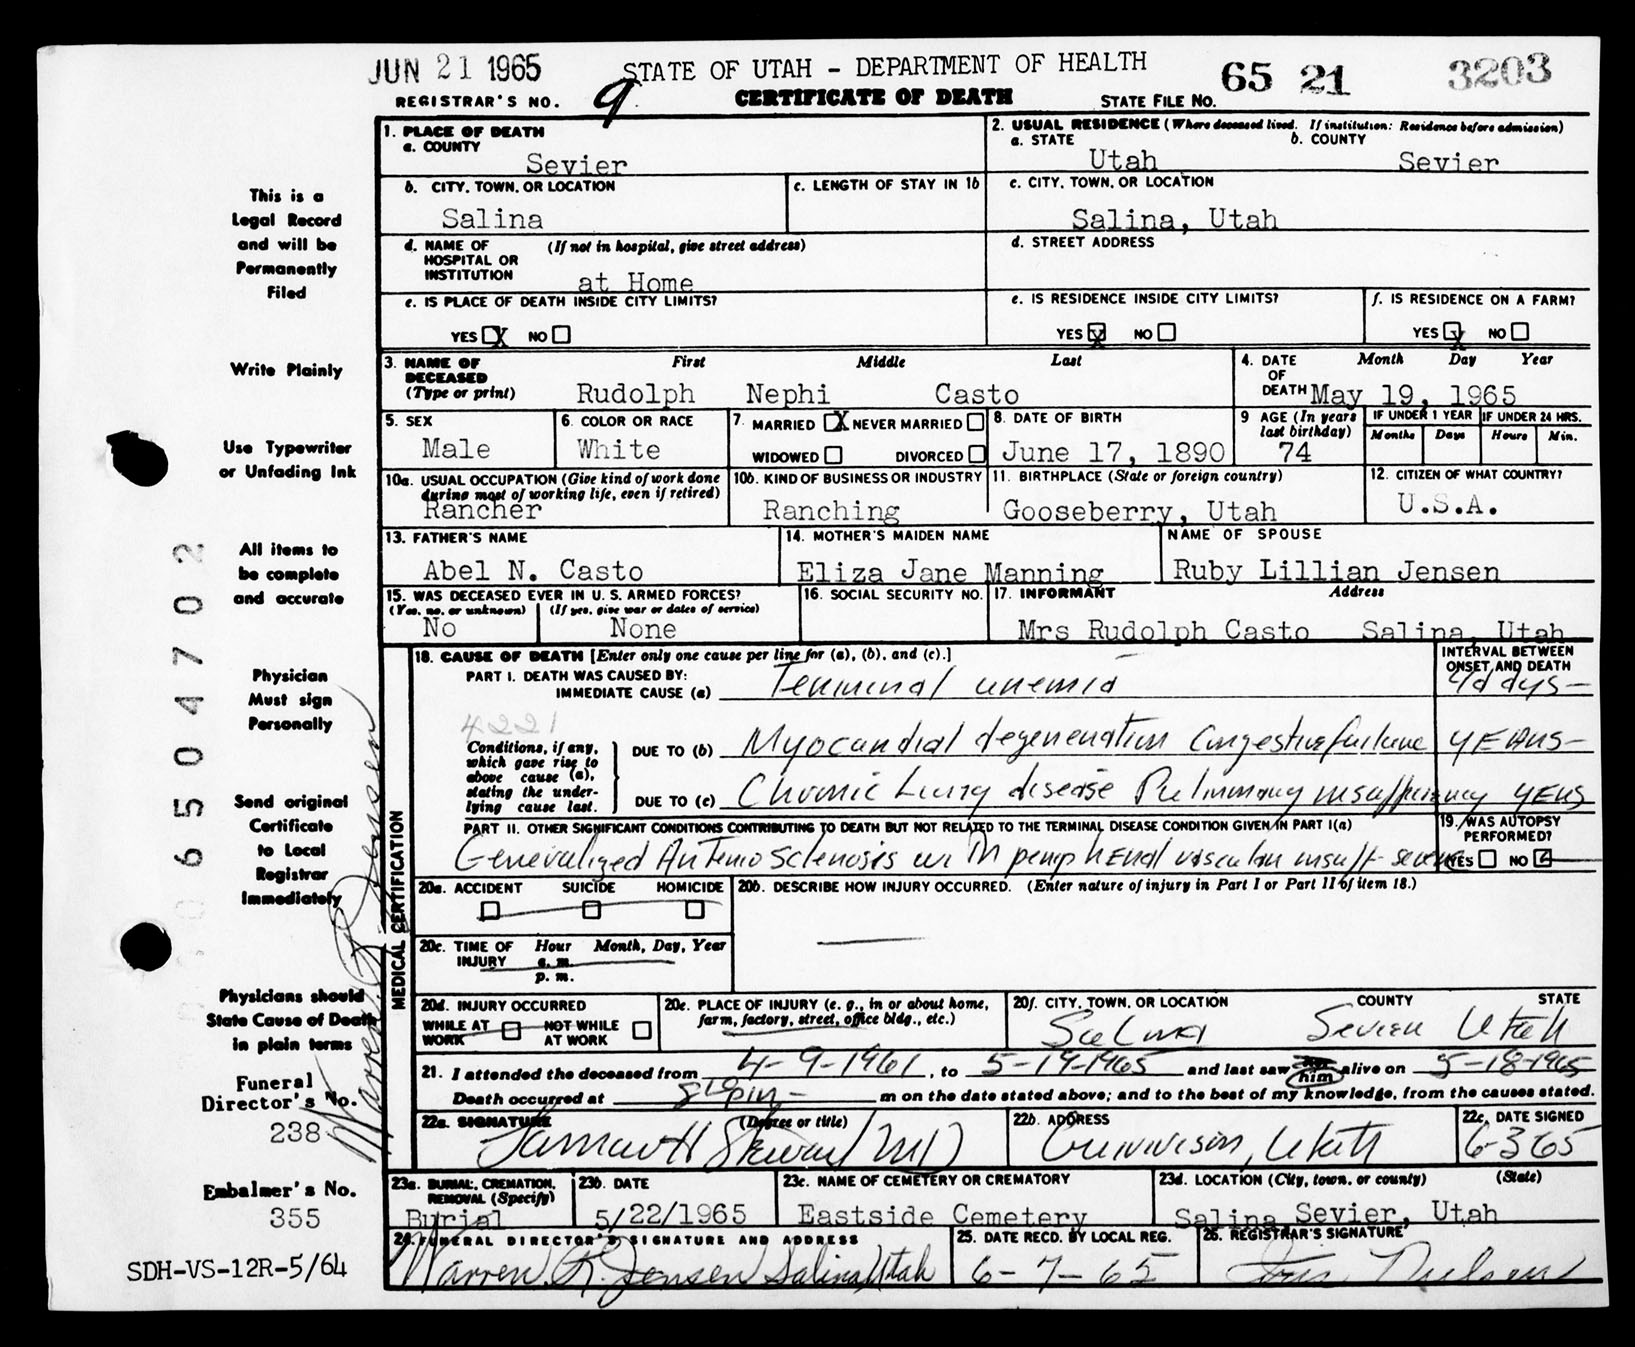 JUN 21 1965 STATE OF UTAH - DEPARTMENT OF HEALTH 65 21 3203
REGISTRAR'S NO. 9. CERTIFICATE OF DEATH STATE FILE NO.
1. PLACE OF DEATH
a. COUNTY
Sevier
2. USUAL RESIDENCE (Where deceased lived. If institution: Residence before admission)
a. STATE b. COUNTY
Utah Sevier
b. CITY, TOWN, OR LOCATION
Salina
c. LENGTH OF STAY IN 1b
c. CITY, TOWN, OR LOCATION
Salina, Utah
d. NAME OF (If not in hospital, give street address)
HOSPITAL OR
INSTITUTION
at Home
d. STREET ADDRESS
e. IS PLACE OF DEATH INSIDE CITY LIMITS?
YES X NO
e. IS RESIDENCE INSIDE CITY LIMITS?
YES X NO
f. IS RESIDENCE ON A FARM?
YES X NO
3. NAME OF First Middle Last
DECEASED
(Type or print) Rudolph Nephi Casto
4. DATE Month Day Year
OF
DEATH May 19, 1965
5. SEX
Male
6. COLOR OR RACE
White
7. MARRIED X NEVER MARRIED
WIDOWED DIVORCED
8. DATE OF BIRTH
June 17, 1890
9 AGE (In years
last birthday)
74
IF UNDER 1 YEAR
Months Days
IF UNDER 24 HRS.
Hours Min.
10a. USUAL OCCUPATION (Give kind of work done
during most of working life, even if retired)
Rancher
10b. KIND OF BUSINESS OR INDUSTRY
Ranching
11. BIRTHPLACE (State or foreign country)
Gooseberry, Utah
12. CITIZEN OF WHAT COUNTRY?
U.S.A.
13. FATHER'S NAME
Abel N. Casto
14. MOTHER'S MAIDEN NAME
Eliza Jane Manning
NAME OF SPOUSE
Ruby Lillian Jensen
15. WAS DECEASED EVER IN U. S. ARMED FORCES?
(Yes, no, or unknown) (If yes, give war or dates of service)
No None
16. SOCIAL SECURITY NO.
17. INFORMANT Address
Mrs Rudolph Casto Salina, Utah
MEDICAL CERTIFICATION
18. CAUSE OF DEATH [Enter only one cause per line for (a), (b), and (c).]
INTERVAL BETWEEN
ONSET AND DEATH
PART I. DEATH WAS CAUSED BY:
IMMEDIATE CAUSE (a) Terminal uremia 4 days-
4221
Conditions, if any,
which gave rise to
above cause (a),
stating the under-
lying cause last.
DUE TO (b) Myocardial degeneration Congestive failure years-
DUE TO (c) Chronic Lung disease Pulmonary insufficiency years
PART II. OTHER SIGNIFICANT CONDITIONS CONTRIBUTING TO DEATH BUT NOT RELATED TO THE TERMINAL DISEASE CONDITION GIVEN IN PART I(a)
Generalized Arteriosclerosis with peripheral vascular insuff- severe
19. WAS AUTOPSY
PERFORMED?
YES NO
20a. ACCIDENT SUICIDE HOMICIDE
20b. DESCRIBE HOW INJURY OCCURRED. (Enter nature of injury in Part I or Part II of item 18.)
20c. TIME OF Hour Month, Day, Year
INJURY a. m.
p. m.
20d. INJURY OCCURRED
WHILE AT NOT WHILE
WORK AT WORK
20e. PLACE OF INJURY (e. g., in or about home,
farm, factory, street, office bldg., etc.)
20f. CITY, TOWN, OR LOCATION COUNTY STATE
Salina Sevier Utah
21. I attended the deceased from 4-9-1961, to 5-19-1965 and last saw him alive on 5-18-1965
Death occurred at 8 pm- m on the date stated above; and to the best of my knowledge, from the causes stated.
22a. SIGNATURE (Degree or title)
MD
22b. ADDRESS
Gunnison, Utah
22c. DATE SIGNED
6-3-65
23a. BURIAL, CREMATION,
REMOVAL (Specify)
Burial
23b. DATE
5/22/1965
23c. NAME OF CEMETERY OR CREMATORY
Eastside Cemetery
23d. LOCATION (City, town, or county) (State)
Salina Sevier, Utah
24. FUNERAL DIRECTOR'S SIGNATURE AND ADDRESS
Warren R. Jensen Salina, Utah
25. DATE RECD. BY LOCAL REG.
6-7-65
26. REGISTRAR'S SIGNATURE
Iris Nielsen
This is a
Legal Record
and will be
Permanently
Filed
Write Plainly
Use Typewriter
or Unfading Ink
All items to
be complete
and accurate
Physician
Must sign
Personally
Send original
Certificate
to Local
Registrar
Immediately
Physicians should
State Cause of Death
in plain terms
Funeral
Director's No.
238
Embalmer's No.
355
SDH-VS-12R-5/64
Warren R. Jensen
6504702